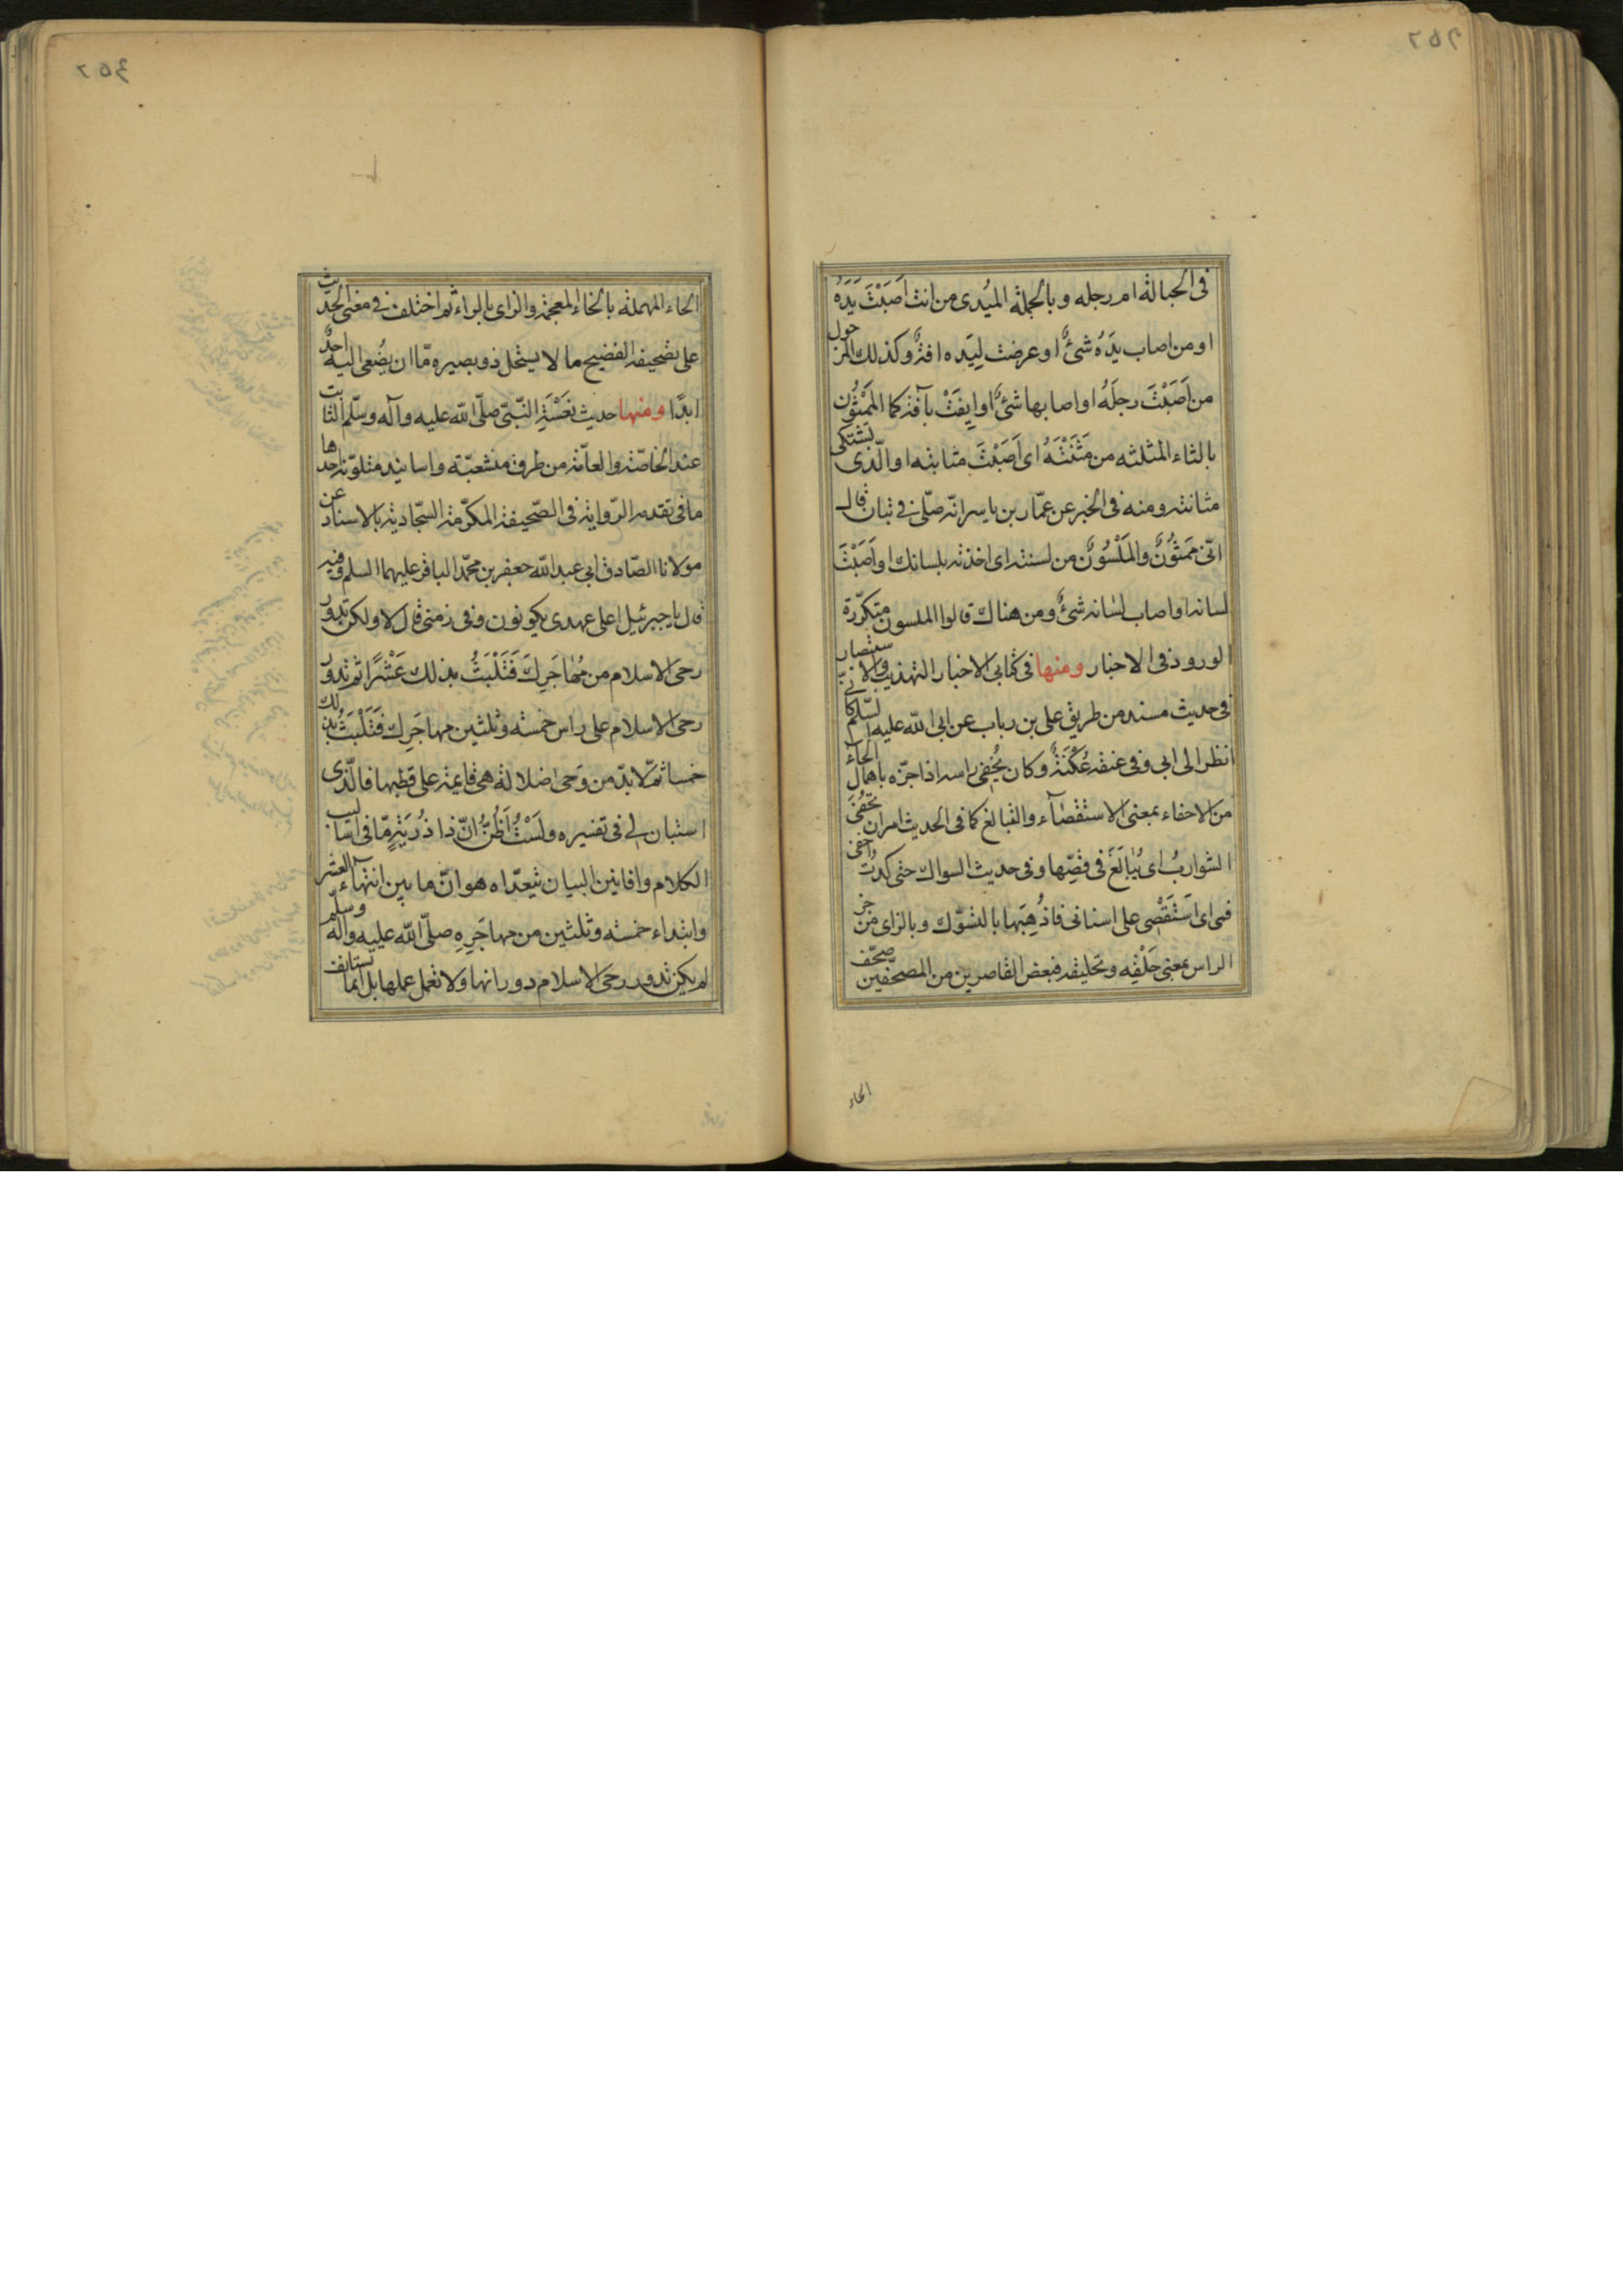 في الحبالة ام رجله و بالجملة الميدى من انت اَصَبْتَ يَدَهُ
او من اصاب يدَهُ شئٌ او عرضت لِيَده افة و كذلك المرجول
من اَصَبْتَ رجلَهُ او اصابها شئٌ او ايِفَتْ بآفة كما المَمْثُون
بالثاء المثلثه من مَثَنْتَهُ اى اَصَبْتَ مثانته او الّذى يشتكى
مثانته و منه فى الخبر عن عمّار بن ياسر انه صلّى في تبان قال
انّى مَمْثُونٌ والمَلْسُونٌ من لسنته اى اخذته بلسانك او اَصَبْتَ
لسانه او اصاب لسانه شئٌ و من هناك قالوا الملسون متكرّرة
الورود فى الاخبار و منها فى كتابى الاخبار التهذيب والاستبصار
فى حديث مسند من طريق على بن رباب عن ابى الله عليه السّلم كانّى
انظر الى ابى و فى عنقه عُكْنَةٌ و كان يُحْفِى راسه اذا جزّه باهمال الحاء
من الاحفاء بمعنى الاستقصآء والتبالغ كما فى الحديث امر ان تحْفُىَ
الشوارب اى يُبالَغَ فى قصّها و فى حديث السواك حتى كدتُ احفى
فمى اى اَستَقْصى على اسنانى فاذْهِبَها بالتسّوّك و بالزاى من جز
الراس بمعنى حَلْقِه و تحليقه فبعض القاصرين من المصحّفين صحّف
الحاء
الحاء المهملة بالخاء المعجمة والزاى بالراء ثم اختلف في معنى الحديث
على تصحيفه الفضيح ما لا يستحل ذو بصيره مّا ان يصُغى اليه احدٌ
ابدًا و منها حديث نَعْسَةِ النّبىّ صلّى الله عليه وآله وسلّم الثابت
عند الخاصّة والعامّة من طرق متشعبّة واسانيد متلوّنة احدها
ما فى تقدمه الرّواية فى الصّحيفة المكرّمة السّجادية بالاسناد عن
مولانا الصّادق ابى عبد الله جعفر بن محمّد الباقر عليهما السلم و فيه
قال يا جبرئيل اعلى عهدى يكونون وفى زمنى قال لا ولكن تدور
رحى الاسلام من مُهاجَرِكَ فَتَلْبَثُ بذلك عَشْرًا ثم تدور
رحى الاسلام على راس خمسة وثلثين من مهاجَرِك فَتَلْبَثُ بذلك
خمسا ثمّ لا بدّ من رَحى ضلالة هى قايمة على قطبها فالّذى
استبان لي فى تفسيره ولَسْتُ اَظُنُّ انّ ذا دُرْيَةٍ مّا فى اساليب
الكلام وافانين البيان يتعدّاه هو انّ ما بين انتهآء العشر
وابتداء خمسة وثلثين من مهاجَرِهِ صلّى الله عليه وآله وسلّم
لم يكن تدور رحى الاسلام دورانها ولا تعمل عملها بل انما تستانف